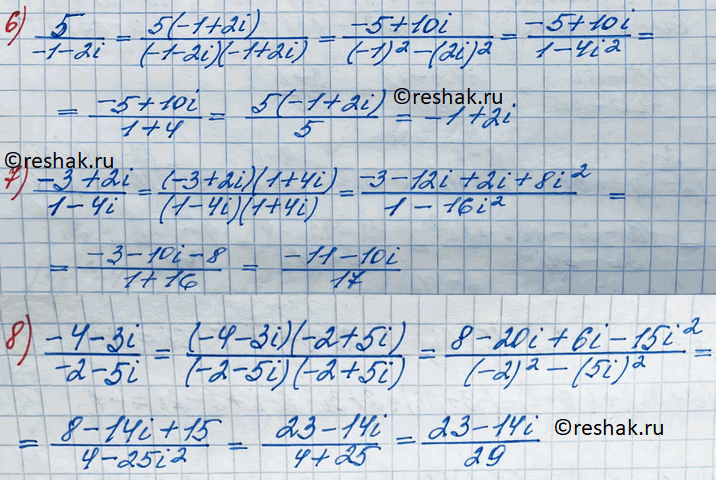 6) 5/(-1-2i) = 5(-1+2i)/((-1-2i)(-1+2i)) = (-5+10i)/((-1)²-(2i)²) = (-5+10i)/(1-4i²) =
= (-5+10i)/(1+4) = 5(-1+2i)/5 = -1+2i
©reshak.ru
©reshak.ru
7) (-3+2i)/(1-4i) = ((-3+2i)(1+4i))/((1-4i)(1+4i)) = (-3-12i+2i+8i²)/(1-16i²) =
= (-3-10i-8)/(1+16) = (-11-10i)/17
8) (-4-3i)/(-2-5i) = ((-4-3i)(-2+5i))/((-2-5i)(-2+5i)) = (8-20i+6i-15i²)/((-2)²-(5i)²) =
= (8-14i+15)/(4-25i²) = (23-14i)/(4+25) = (23-14i)/29
©reshak.ru